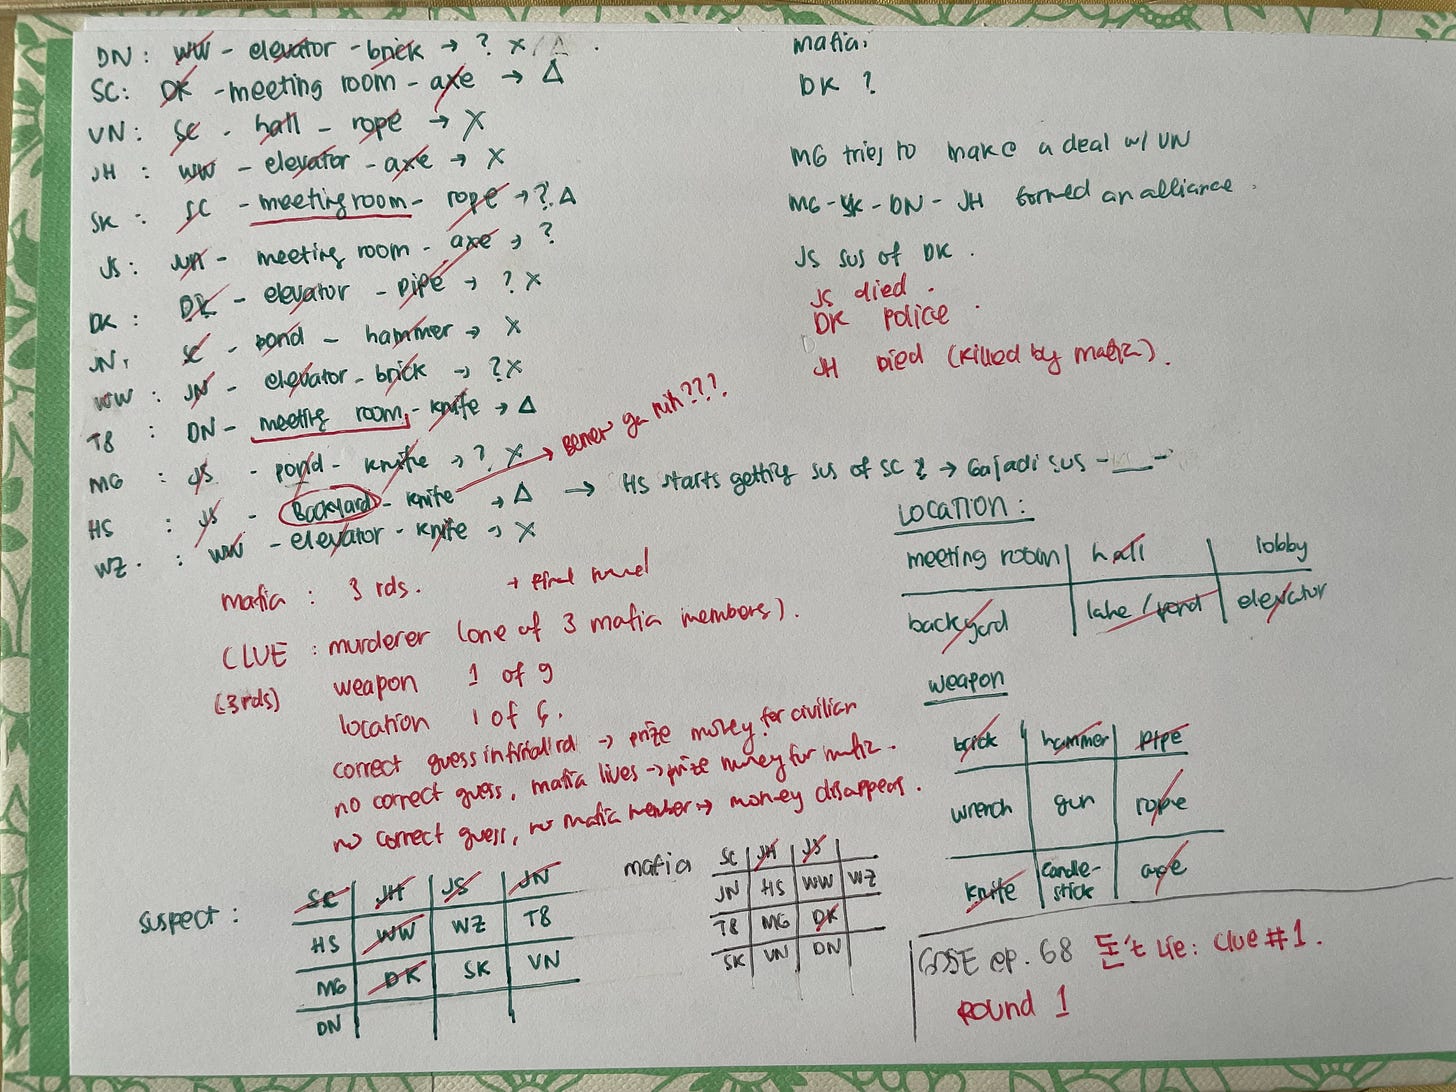 DN : WW - elevator - brick → ? x / Δ .
SC : DK - meeting room - axe → Δ
VN : SC - hall - rope → X
JH : WW - elevator - axe → X
SK : SC - meeting room - rope → ? Δ
JS : JUN - meeting room - axe → ?
DK : DK - elevator - pipe → ? X
JN, SC - pond - hammer → X
WW : JN - elevator - brick → ? X
T8 : DN - meeting room - knife → Δ
MG : JS - pond - knife → ? X → Bener ga nih???
HS : JS - Backyard - knife → Δ → HS starts getting sus of SC ? → Ga jadi sus -__-
WZ . : WW - elevator - knife → X
mafia:
DK ?
MG tries to make a deal w/ VN
MG - SK - DN - JH formed an alliance .
JS sus of DK .
JS died .
DK police .
JH Died (killed by mafia) .
mafia : 3 rds. + final round
CLUE : murderer (one of 3 mafia members) .
(3 rds) weapon 1 of 9
location 1 of 6 .
correct guess in final rd → prize money for civilian
no correct guess, mafia lives → prize money for mafia .
no correct guess, no mafia member → money disappears .
LOCATION :
meeting room hall lobby
backyard lake / pond elevator
weapon
brick hammer pipe
wrench gun rope
knife candle-stick axe
suspect :
SC JH JS JN
HS WW WZ T8
MG DK SK VN
DN
mafia
SC JH JS
JN HS WW WZ
T8 MG DK
SK VN DN
GOSE ep. 68 돈't Lie : Clue #1 .
ROUND 1